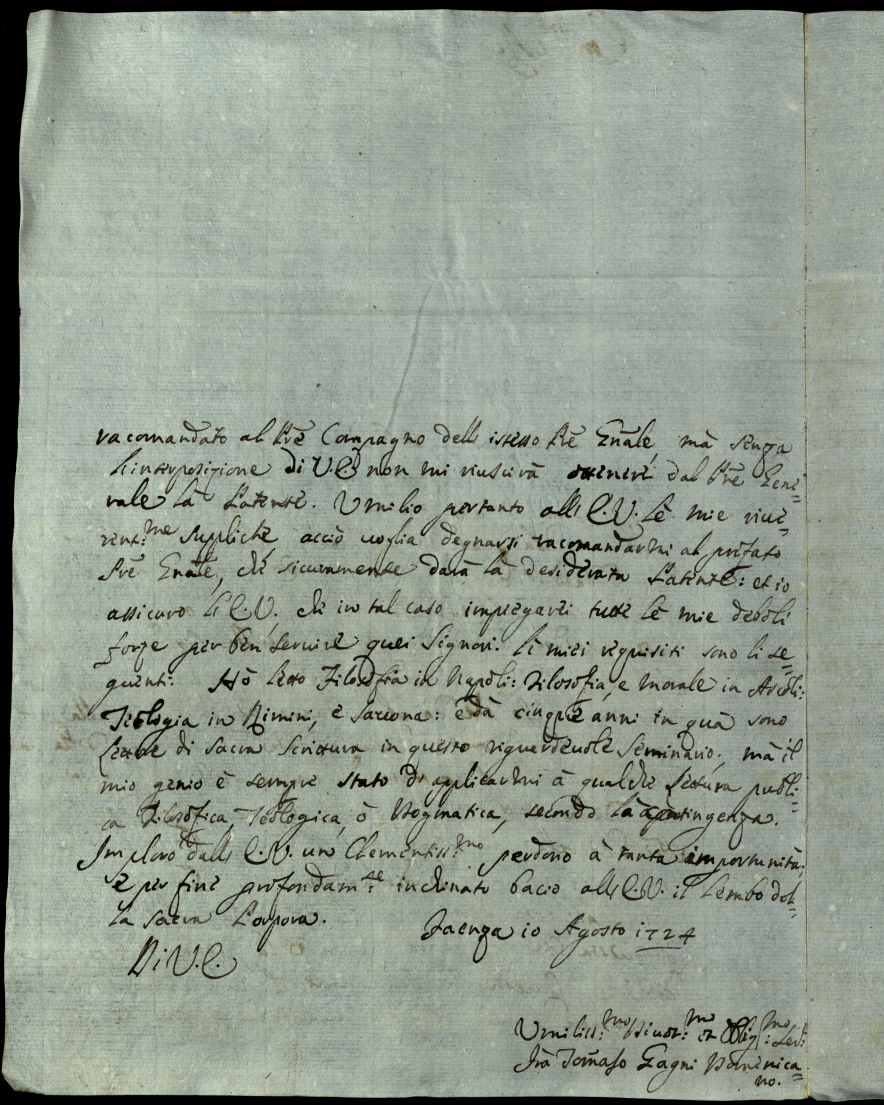 racomandato al Prē Compagno dell istesso Prē Gñale, mà senza
l'interposizione di V.E. non mi riuscirà ottenere dal Prē Gene=
rale la Patente. Umilio pertanto all E.V. le mie rive=
rent:me suppliche acciò voglia degnarsi racomandarmi al prefato
Prē Gñale, che sicuramente darà la desiderata Patente: et io
assicuro l'E.V. che in tal caso impiegarei tutte le mie deboli
forze per ben servire quei Signori. li miei requisiti sono li se=
guenti: Hò letto Filosofia in Napoli: Filosofia, e Morale in Ascoli:
Teologia in Rimini, e Savona: e dà cinque anni in quà sono
Lettore di Sacra Scrittura in questo riguardevole Seminario; mà il
mio genio è sempre stato di applicarmi à qualche Lettura publi=
ca Filosofica, Teologica, ò Dogmatica, secondo la contingenza.
Imploro dall E.V. un Clementiss:mo perdono à tanta importunità;
e per fine profondam:te inchinato bacio all E.V. il lembo del=
la Sacra Porpora. Faenza 10 Agosto 1724
Di V.E.
Umiliss:mo Divot:mo et Oblig:mo Ser:
Frà Tomaso Gagni Domenica=
no.